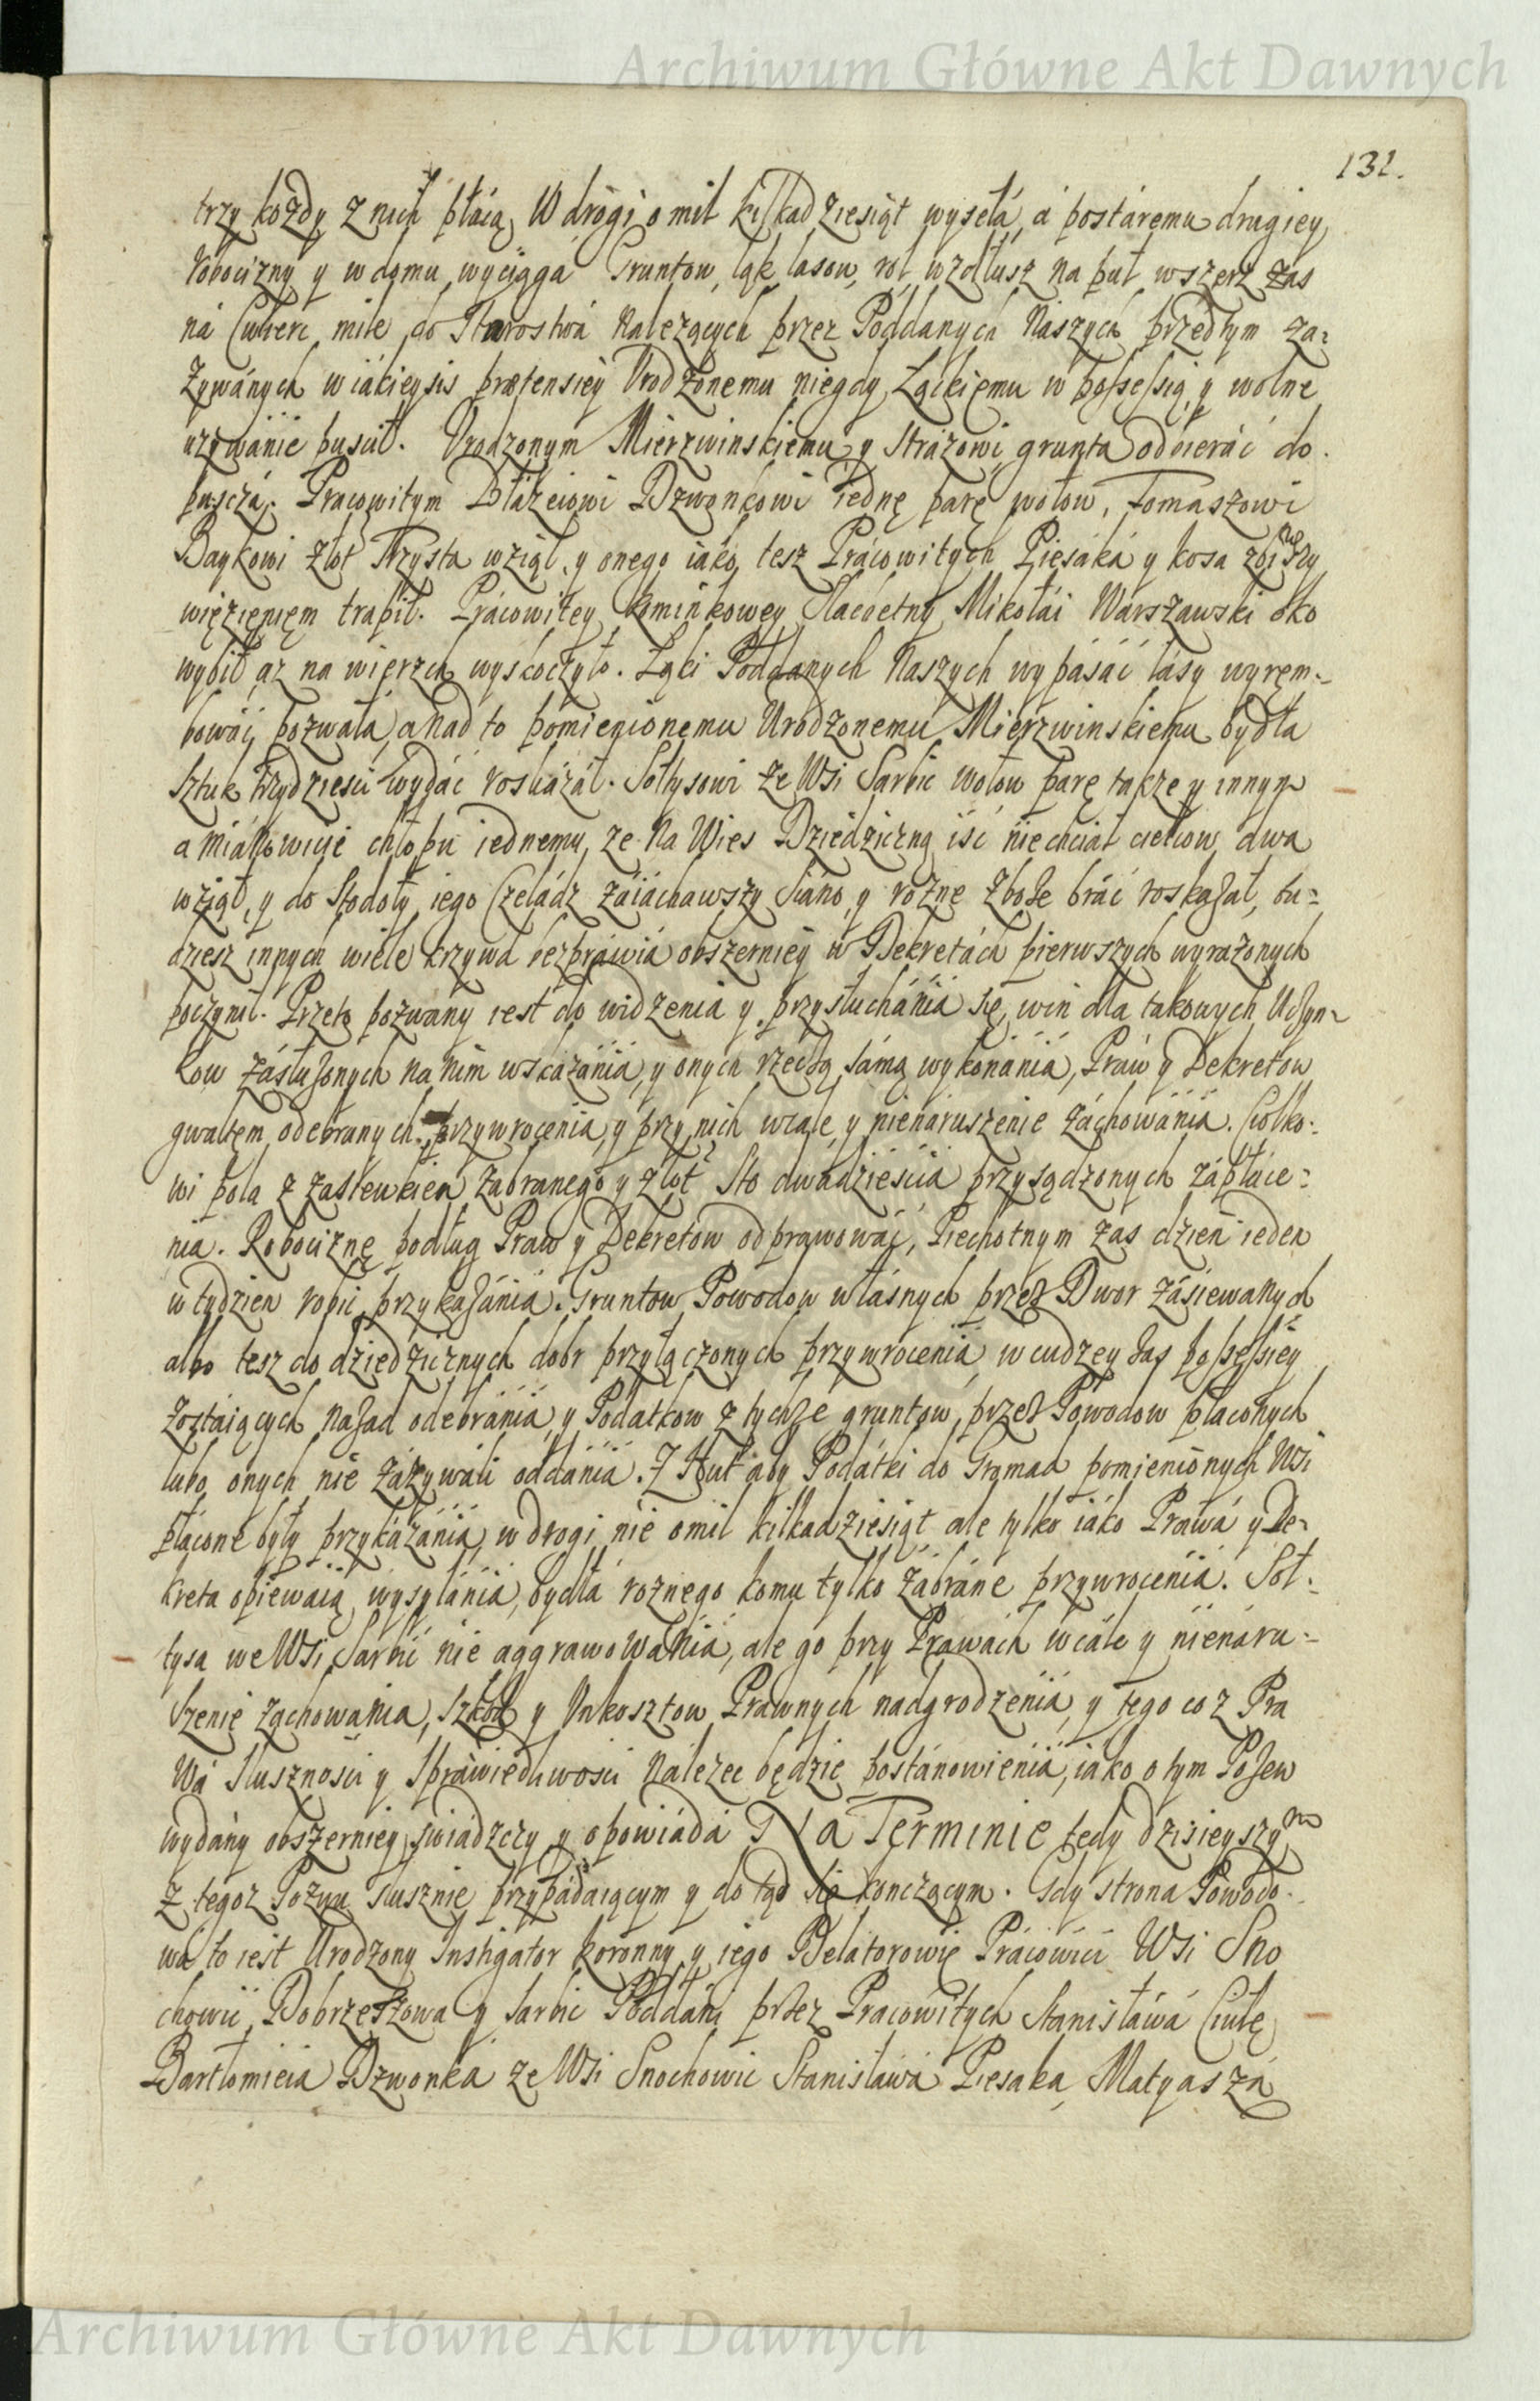 Archiwum Główne Akt Dawnych
132.
trzy kożdy z nich płácą W drogi o mil kilkadziesiąt wyseła, á postáremu drugiey
robocizny y w domu wyciąga Gruntow, łąk lasow, rol, wzdłusz na puł wszerz zas
ná Cwierc mile do Starostwá Należących przez Poddanych Naszych przedtym za-
żywánych w iákieysis prætensiey Urodzonemu niegdy Łąckiemu w possessią y wolne
używánie puscił. Urodzonym Mierzwinskiemu y Strażowi grunta odbieráć do-
puszczá. Pracowitym Błażeiowi Dzwonkowi iednę parę wołow, Tomaszowi
Baykowi złot Trzysta wziął, y onego iáko tesz Prácowitych Piesáká y Kosa zbiwszy
więzięnięm trapił. Prácowitey Kminkowey Slachetny Mikołái Warszawski oko
wybił aż na wierzch wyskoczyło. Łąki Poddanych Naszych wypásáć lásy wyręm-
bowáć pozwala, a nad to pomienionemu Urodzonemu Mierzwinskiemu bydła
sztuk trzydziesci wydáć roskázał. Sołtysowi ze Wsi Sarbic wołow parę także y innym
a miánowicie chłopu iednemu, że Na Wies Dziedziczną iść niechciał cielcow dwa
wziął, y do Stodoły iego Czeládz záiáchawszy Siáno, y rożne zboże bráć roskazał, tu-
dziesz innych wiele krzywd bezpráwiá obszerniey w Dekretách pierwszych wyrażonych
poczynił. Przeto pozwány iest do widzenia y przysłuchánia się, win dla takowych Uczyn-
kow zásłużonych na nim wskázánia, y onych rzeczą sámą wykonánia, Praw y Dekretow
gwałtęm odebranych przywrocenia, y przy nich wcale y nienáruszenie záchowánia. Ciołko-
wi pola z zasiewkiem zabranego y złot Sto dwádziesciá przysądzonych zápłáce-
nia. Robociznę podług Praw y Dekretow odprawowáć, Piechotnym zas dzien ieden
w tydzien robic przykazánia. Gruntow Powodow własnych przez Dwor zásiewanych
albo tesz do dziedzicznych dobr przyłączonych przywrocenia, w cudzey zas possessiey
zostáiących nazad odebránia, y Podatkow z tychże gruntow, przez Powodow płaconych
lubo onych nie záżywali oddánia. Z Hut aby Podátki do Gromad pomienionych Wsi
płácone były przykázánia, w drogi nie o mil kilkadziesiąt ale tylko iáko Prawá y De-
kreta opiewáią wysyłánia, bydłá rożnego komu tylko zábráne przywrocenia. Soł-
tysa we Wsi Sarbic nie aggrawowánia, ale go przy Prawách wcále y nienáru-
szenie zachowánia, szkod y Unkosztow Prawnych nadgrodzenia, y tego co z Pra
wá Słusznosci y Spráwiedliwosci Należec będzie postánowienia, iáko o tym Pozew
wydány obszerniey swiádczy y opowiáda Na Terminie tedy dzisieyszym
z tegoż Pozwu słusznie przypádaiącym y do tąd się kończącym. Gdy strona Powodo-
wa to iest Urodzony Instigator Koronny, y iego Delatorowie Prácowici Wsi Sno
chowic, Dobrzeszowa y Sarbic Poddáni przez Pracowitych Stanisławá Ciułę
Bartłomieia Dzwonká ze Wsi Snochowic Stanisławá Piesaka, Matyaszá
Archiwum Główne Akt Dawnych